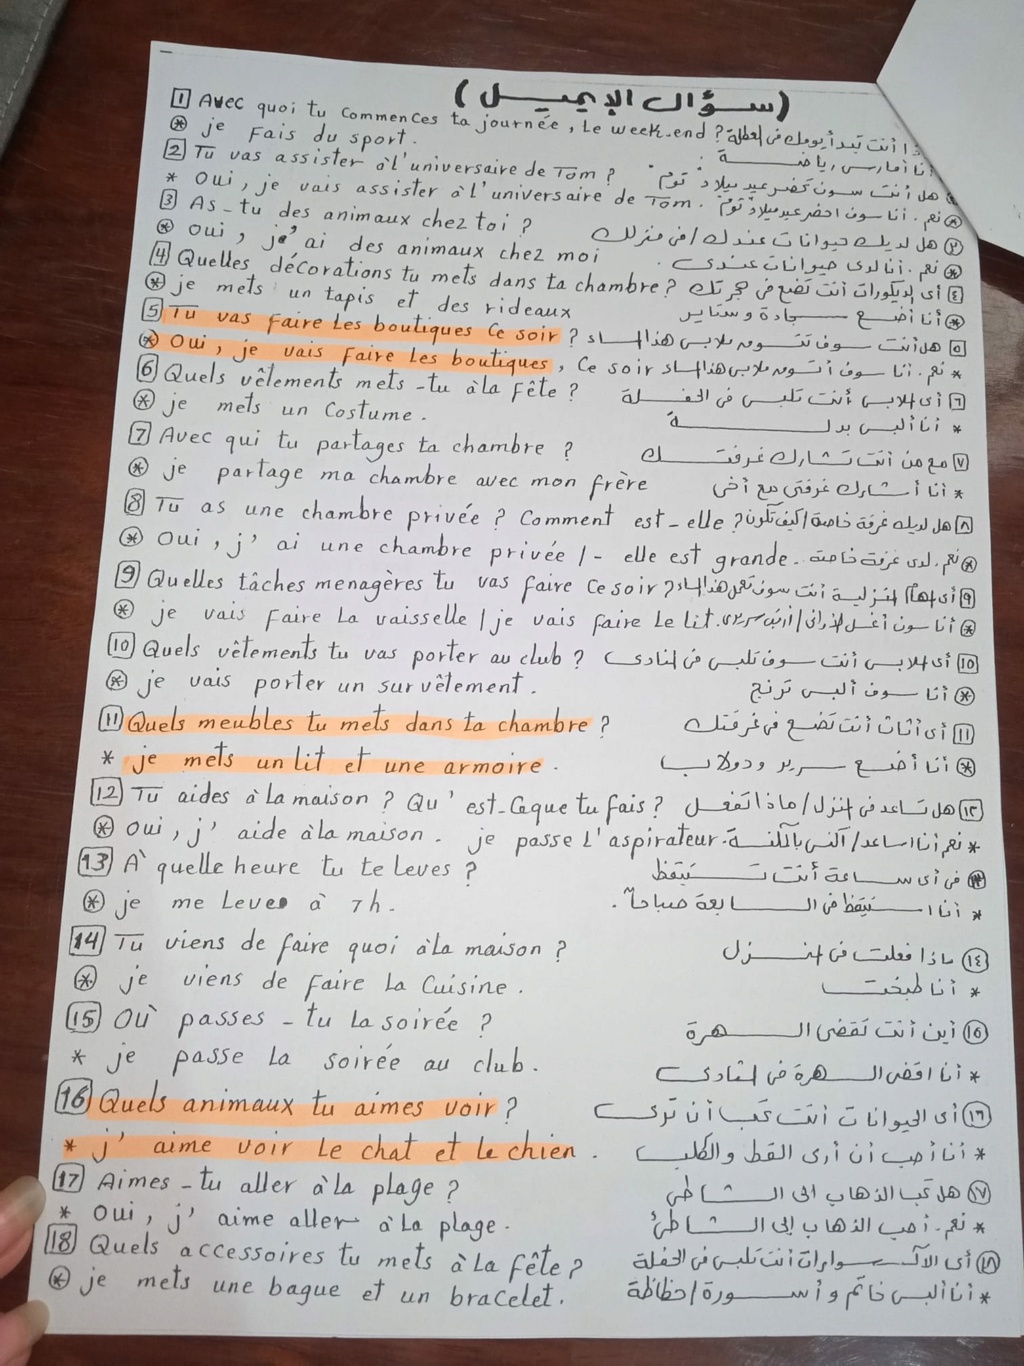 (سؤال الإيميل)
1 Avec quoi tu commences ta journée, Le week-end ? أنت تبدأ يومك فى العطلة
* je Fais du sport. أنا أمارس رياضة
2 Tu vas assister à l'universaire de Tom ? هل أنت سوف تحضر عيد ميلاد توم
* Oui, je vais assister à l'universaire de Tom. نعم. أنا سوف احضر عيد ميلاد توم
3 As-tu des animaux chez toi ? هل لديك حيوانات عندك / فى منزلك
* Oui, j'ai des animaux chez moi نعم. أنا لدى حيوانات عندى.
4 Quelles décorations tu mets dans ta chambre ? ٤ أى الديكورات أنت تضع فى حجرتك
* je mets un tapis et des rideaux أنا أضع سجادة وستاير
5 Tu vas Faire Les boutiques Ce soir ? ٥ هل أنت سوف تتسوق ملابس هذا المساء
* Oui, je vais faire Les boutiques, Ce soir نعم. أنا سوف أتسوق ملابس هذا المساء *
6 Quels vêtements mets-tu à la fête ? ٦ أى الملابس أنت تلبس فى الحفلة
* je mets un Costume. أنا ألبس بدلة *
7 Avec qui tu partages ta chambre ? ٧ مع من أنت تشارك غرفتك
* je partage ma chambre avec mon frère أنا أشارك غرفتى مع أخى *
8 Tu as une chambre privée ? Comment est-elle ? ٨ هل لديك غرفة خاصة / كيف تكون
* Oui, j'ai une chambre privée /- elle est grande. نعم. لدى غرفة خاصة. *
9 Quelles tâches menagères tu vas faire Ce soir ? ٩ أى المهام المنزلية أنت سوف تعمل هذا المساء
* je vais Faire La vaisselle / je vais faire Le lit. أنا سوف أغسل الأوانى / أرتب سريرى *
10 Quels vêtements tu vas porter au club ? ١٠ أى الملابس أنت سوف تلبس فى النادى
* je vais porter un survêtement. أنا سوف ألبس ترنج *
11 Quels meubles tu mets dans ta chambre ? ١١ أى أثاث أنت تضع فى غرفتك
* je mets un lit et une armoire. أنا أضع سرير ودولاب *
12 Tu aides à la maison ? Qu'est-Ceque tu fais ? ١٢ هل تساعد فى المنزل / ماذا تفعل
* Oui, j'aide à la maison. je passe L'aspirateur. نعم أنا اساعد / أكنس بالمكنسة *
13 À quelle heure tu te Leves ? فى أى ساعة أنت تستيقظ
* je me Leve à 7h. أنا استيقظ فى السابعة صباحاً. *
14 Tu viens de faire quoi à la maison ? ١٤ ماذا فعلت فى المنزل
* je viens de Faire La Cuisine. أنا طبخت *
15 Où passes-tu La soirée ? ١٥ أين أنت تقضى السهرة
* je passe La soirée au club. أنا اقضى السهرة فى النادى *
16 Quels animaux tu aimes voir ? ١٦ أى الحيوانات أنت تحب أن ترى
* j'aime voir Le chat et Le chien. أنا أحب أن أرى القط والكلب *
17 Aimes-tu aller à la plage ? ١٧ هل تحب الذهاب الى الشاطئ
* Oui, j'aime aller à La plage. نعم. أحب الذهاب إلى الشاطئ *
18 Quels accessoires tu mets à La fête ? ١٨ أى الاكسسوارات أنت تلبس فى الحفلة
* je mets une bague et un bracelet. أنا ألبس خاتم وأسورة / حظاظة *